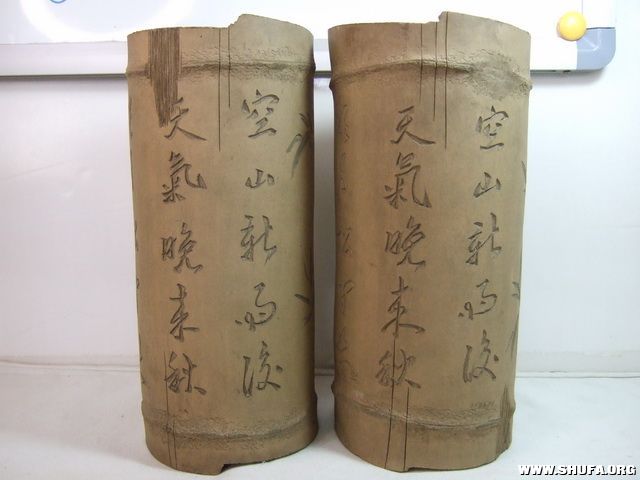 空山新雨後
天氣晚来秋
空山新雨後
天氣晚来秋
WWW.SHUFA.ORG